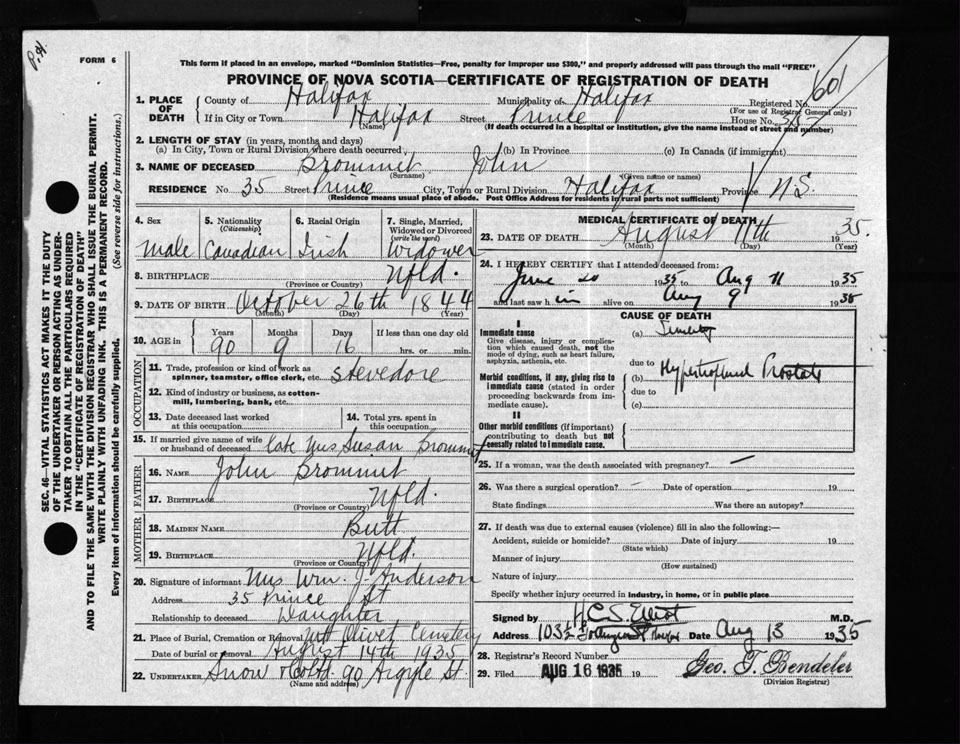 P.H.
FORM 6
This form if placed in an envelope, marked "Dominion Statistics—Free, penalty for improper use $300," and properly addressed will pass through the mail "FREE"
PROVINCE OF NOVA SCOTIA—CERTIFICATE OF REGISTRATION OF DEATH
601
1. PLACE OF DEATH County of Halifax Municipality of Halifax Registered No.
(For use of Registrar General only)
If in City or Town Halifax Street Prince House No. 35
(Name) (If death occurred in a hospital or institution, give name instead of street and number)
2. LENGTH OF STAY (in years, months and days)
(a) In City, Town or Rural Division where death occurred (b) In Province (c) In Canada (if immigrant)
3. NAME OF DECEASED Brommit John
(Surname) (Given name or names)
RESIDENCE No. 35 Street Prince City, Town or Rural Division Halifax Province N.S.
(Residence means usual place of abode. Post Office Address for residents in rural parts not sufficient)
4. Sex 5. Nationality (Citizenship) 6. Racial Origin 7. Single, Married, Widowed or Divorced (write the word)
Male Canadian Irish Widower
8. BIRTHPLACE Nfld.
(Province or Country)
9. DATE OF BIRTH October 26th 1844
(Month) (Day) (Year)
10. AGE in Years Months Days If less than one day old
90 9 16 hrs. or min.
OCCUPATION
11. Trade, profession or kind of work as spinner, teamster, office clerk, etc. stevedore
12. Kind of industry or business, as cotton-mill, lumbering, bank, etc.
13. Date deceased last worked at this occupation
14. Total yrs. spent in this occupation
15. If married give name of wife or husband of deceased late Mrs Susan Brommit
FATHER
16. NAME John Brommit
17. BIRTHPLACE Nfld.
(Province or Country)
MOTHER
18. MAIDEN NAME Butt
19. BIRTHPLACE Nfld.
(Province or Country)
20. Signature of informant Mrs Wm. J. Anderson
Address 35 Prince St
Relationship to deceased Daughter
21. Place of Burial, Cremation or Removal Mt Olivet Cemetery
Date of burial or removal August 14th 1935
22. UNDERTAKER Snow & Co Ltd. 90 Argyle St.
(Name and address)
MEDICAL CERTIFICATE OF DEATH
23. DATE OF DEATH August 11th 1935.
(Month) (Day) (Year)
24. I HEREBY CERTIFY that I attended deceased from:
June 20 1935 to Aug 11 1935
and last saw him alive on Aug 9 1935
CAUSE OF DEATH
I
Immediate cause
Give disease, injury or complication which caused death, not the mode of dying, such as heart failure, asphyxia, asthenia, etc.
(a) Senility
due to
Morbid conditions, if any, giving rise to immediate cause (stated in order proceeding backwards from immediate cause).
(b) Hypertrophied Prostate
due to
(c)
II
Other morbid conditions (if important) contributing to death but not causally related to immediate cause.
25. If a woman, was the death associated with pregnancy? —
26. Was there a surgical operation? Date of operation 19
State findings Was there an autopsy?
27. If death was due to external causes (violence) fill in also the following:—
Accident, suicide or homicide? Date of injury 19
(State which)
Manner of injury
(How sustained)
Nature of injury
Specify whether injury occurred in industry, in home, or in public place
Signed by H C S Elliot M.D.
Address 103½ Date Aug 13 1935
28. Registrar's Record Number
29. Filed AUG 16 1935 19 Geo. T. Bendeler
(Division Registrar)
SEC. 46—VITAL STATISTICS ACT MAKES IT THE DUTY
OF THE UNDERTAKER OR PERSON ACTING AS UNDER-
TAKER TO OBTAIN ALL THE PARTICULARS REQUIRED
IN THE "CERTIFICATE OF REGISTRATION OF DEATH"
AND TO FILE THE SAME WITH THE DIVISION REGISTRAR WHO SHALL ISSUE THE BURIAL PERMIT.
WRITE PLAINLY WITH UNFADING INK. THIS IS A PERMANENT RECORD.
Every item of information should be carefully supplied. (See reverse side for instructions.)